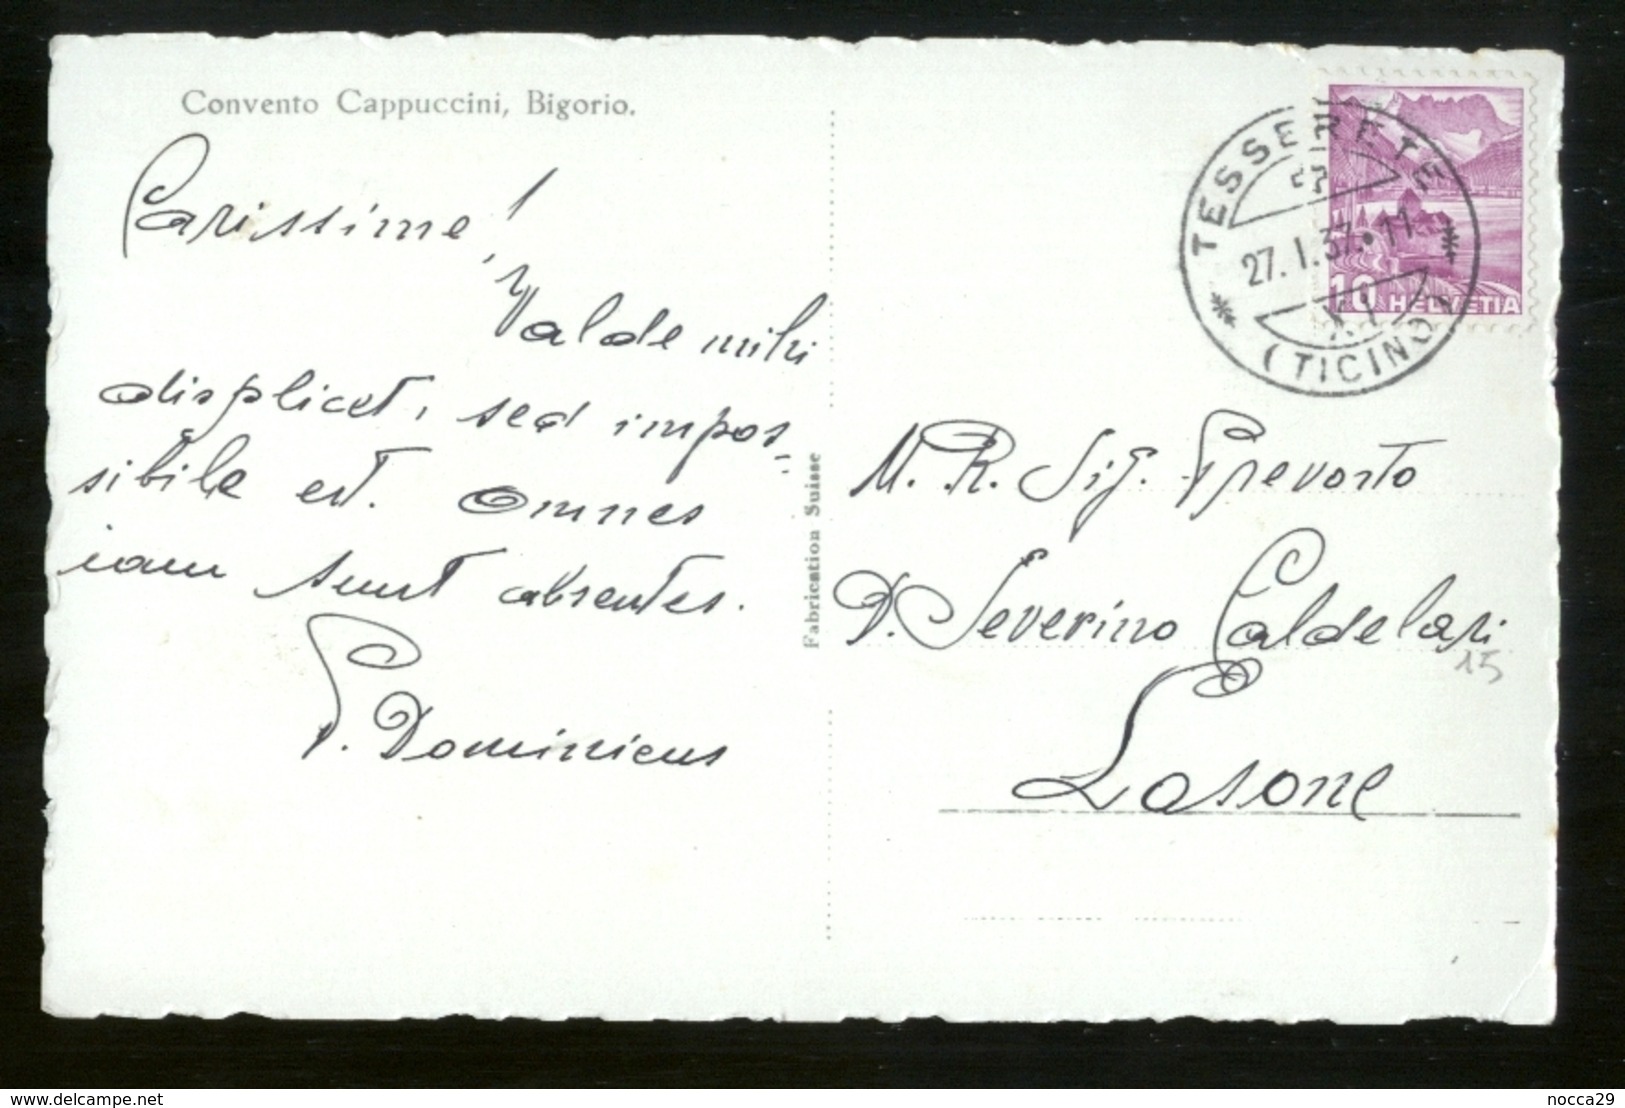 Convento Cappuccini, Bigorio.
Carissime!
Valde mihi
displicet, sed impos-
sibile est. Omnes
iam sunt absentes.
P. Dominicus
Fabrication Suisse
TESSERETE
27. I. 37. 11
(TICINO)
10 HELVETIA
M. R. Sig. Prevosto
D. Severino Caldelari
15
Lasone
delcampe.net
nocca29